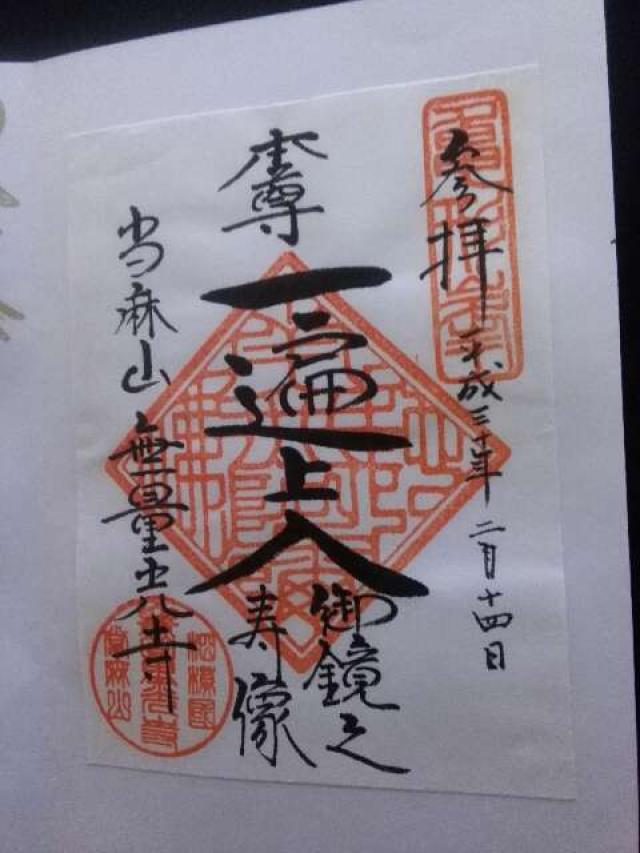 参拝 平成三十年 二月十四日
本尊
一遍上人
御鏡之
寿像
当麻山 無量光寺